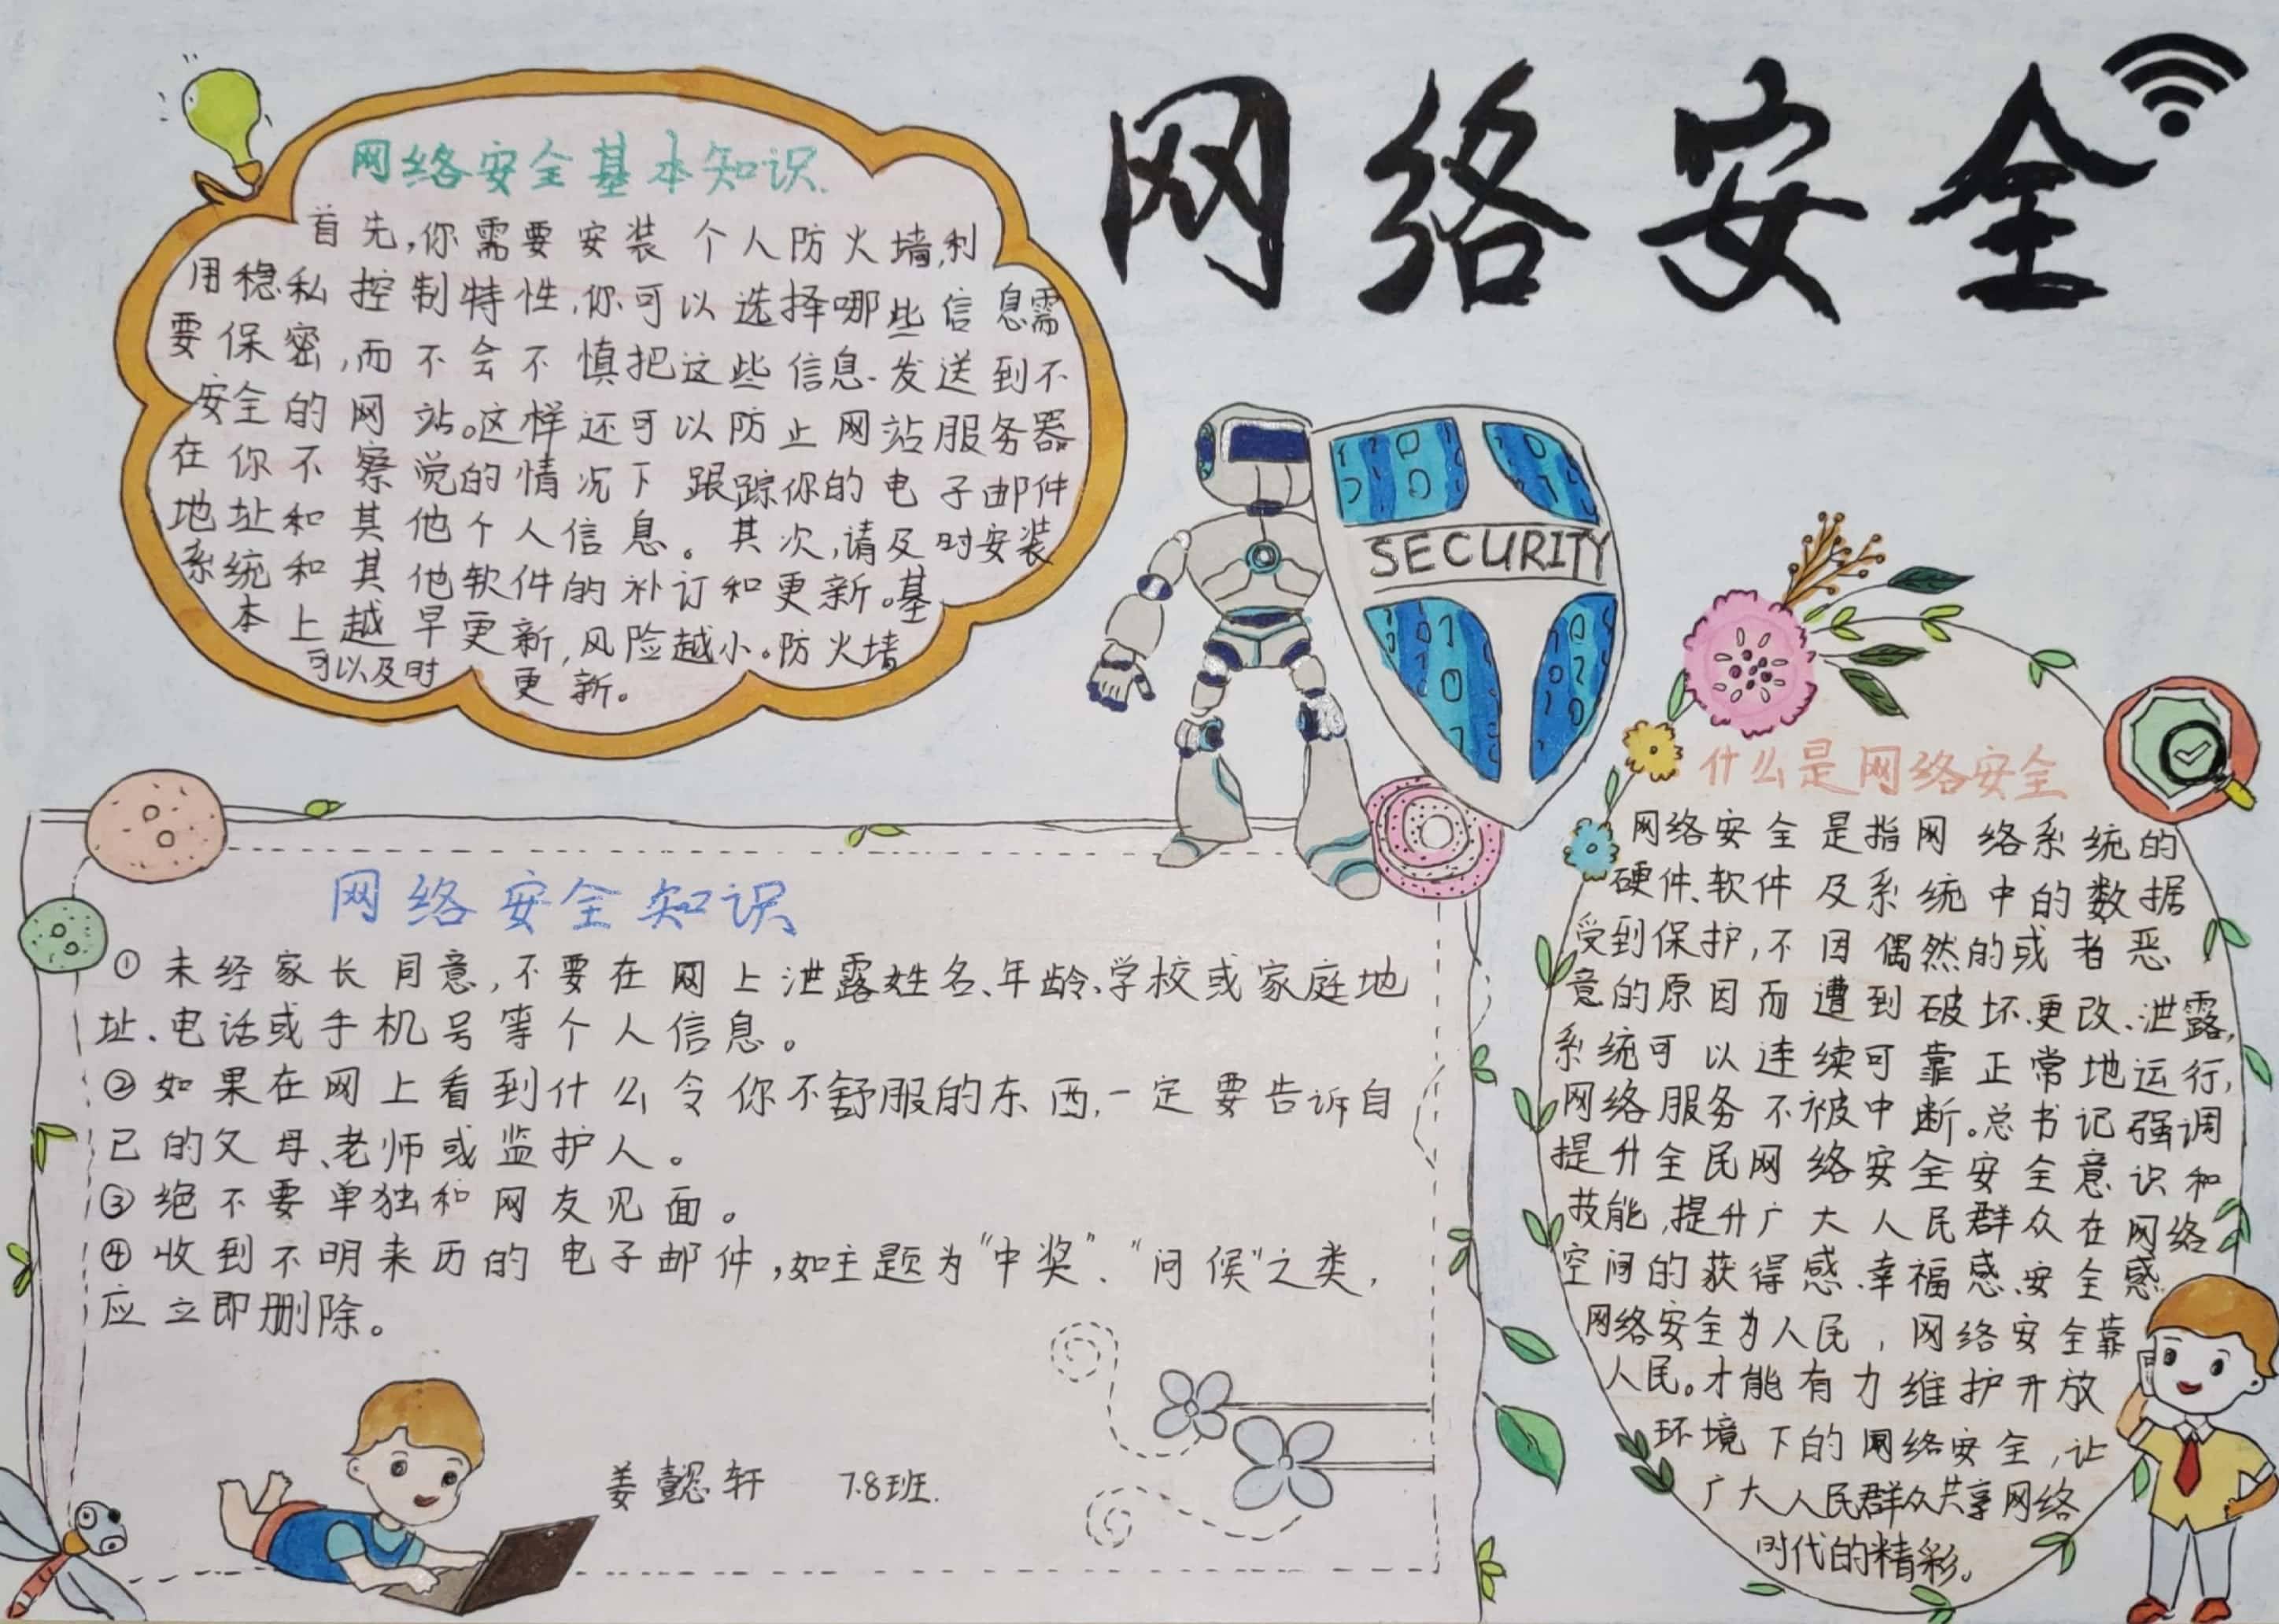 网络安全
网络安全基本知识
首先,你需要安装个人防火墙,利
用稳私控制特性,你可以选择哪些信息需
要保密,而不会不慎把这些信息发送到不
安全的网站。这样还可以防止网站服务器
在你不察觉的情况下跟踪你的电子邮件
地址和其他个人信息。其次,请及时安装
系统和其他软件的补订和更新。基
本上越早更新,风险越小。防火墙
可以及时更新。
SECURITY
网络安全知识
①未经家长同意,不要在网上泄露姓名、年龄、学校或家庭地
址、电话或手机号等个人信息。
②如果在网上看到什么令你不舒服的东西,一定要告诉自
己的父母、老师或监护人。
③绝不要单独和网友见面。
④收到不明来历的电子邮件,如主题为“中奖”、“问候”之类,
应立即删除。
姜懿轩 7.8班.
什么是网络安全
网络安全是指网络系统的
硬件、软件及系统中的数据
受到保护,不因偶然的或者恶
意的原因而遭到破坏、更改、泄露,
系统可以连续可靠正常地运行,
网络服务不被中断。总书记强调
提升全民网络安全安全意识和
技能,提升广大人民群众在网络
空间的获得感、幸福感、安全感
网络安全为人民,网络安全靠
人民。才能有力维护开放
环境下的网络安全,让
广大人民群众共享网络
时代的精彩。